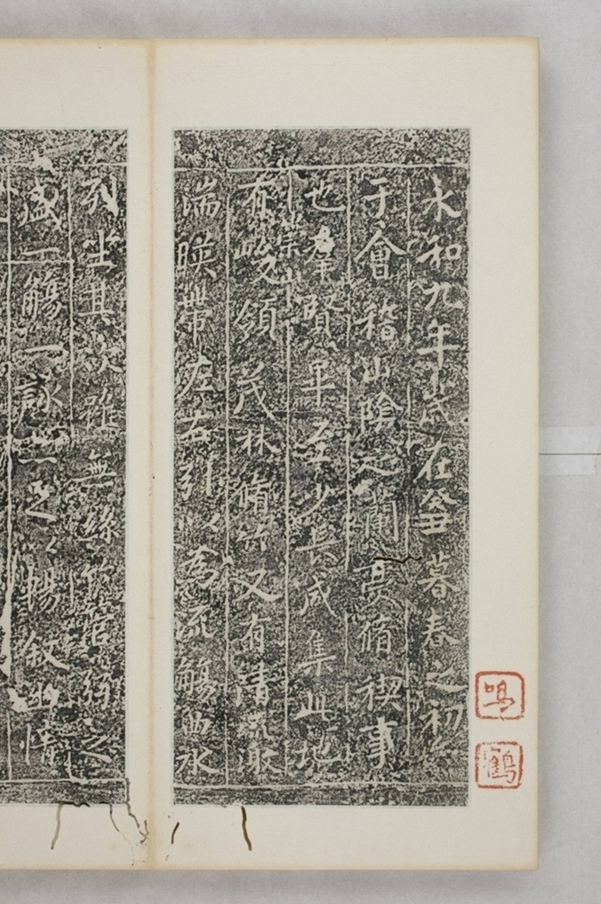 永和九年歲在癸丑暮春之初
于會稽山陰之蘭亭脩稧事
也羣賢畢至少長咸集此地
有崇山峻領茂林脩竹又有清流激
湍暎帶左右引以為流觴曲水
列坐其次雖無絲竹管弦之
盛一觴一詠亦足以暢敘幽情
鳴
鶴